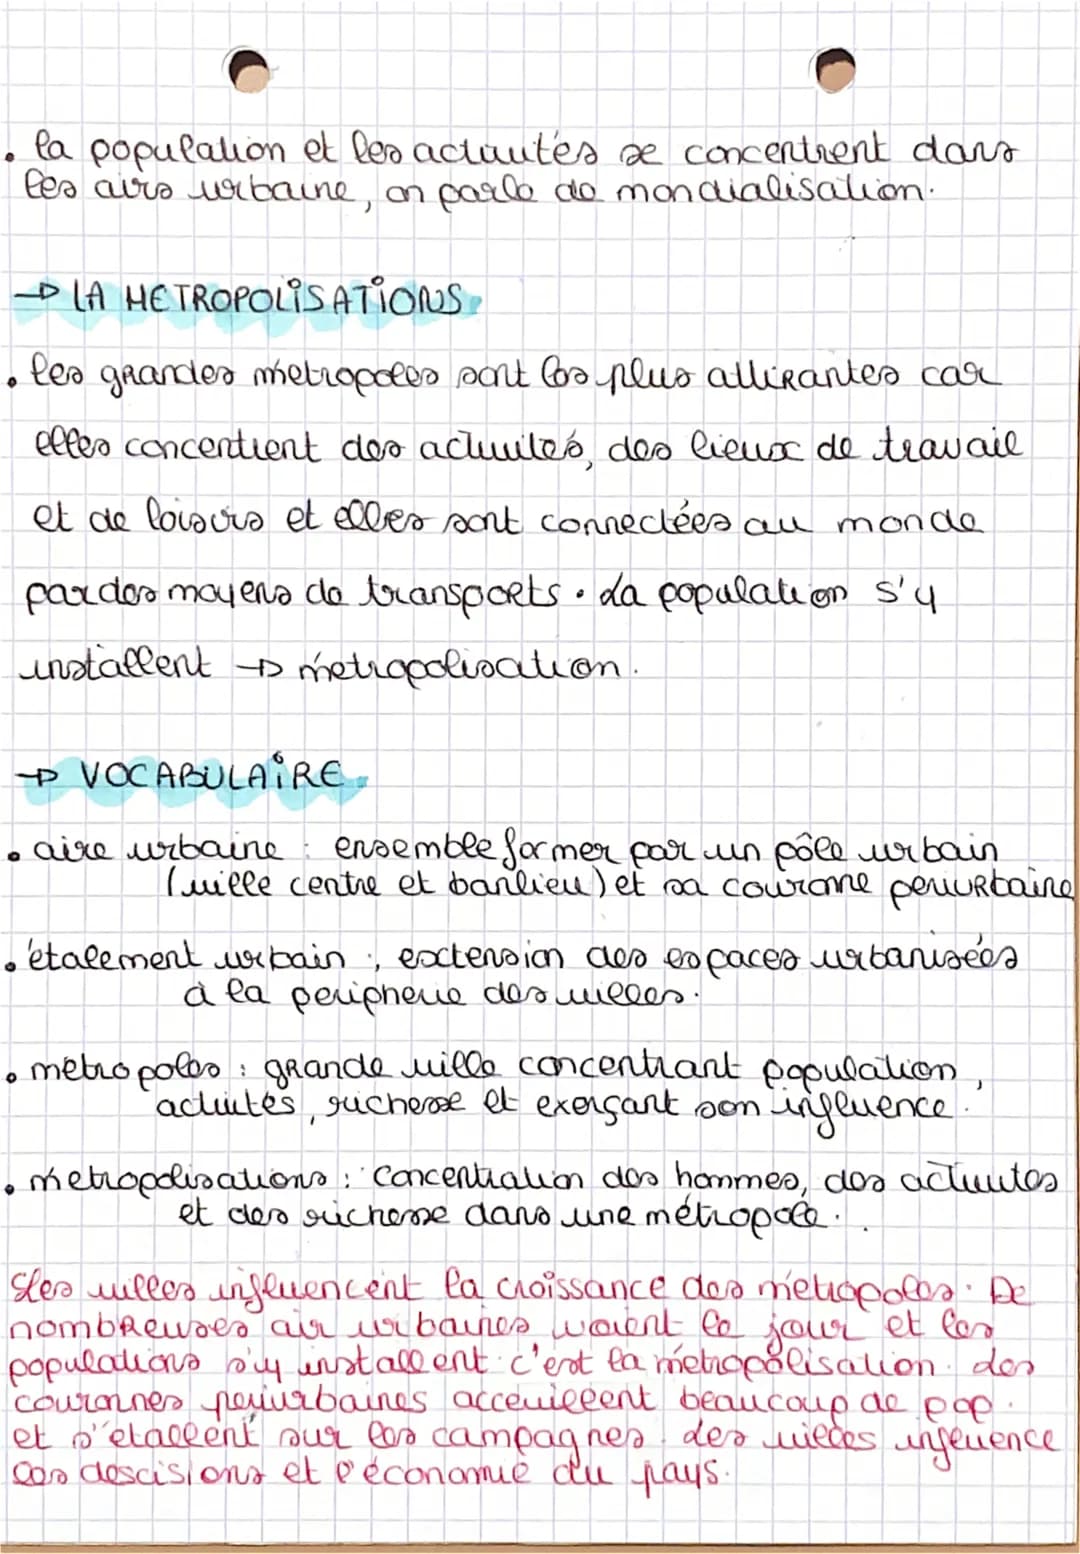 . la population et les activités se concentrent dans
les airs urbaine, on parle de mondialisation.
→ LA METROPOLISATIONS
. les grandes métropoles sont les plus attirantes car
elles concentrent des activités, des lieux de travail
et de loisirs et elles sont connectées au monde
par des moyens de transports. La population s'y
installent → métropolisation.
→ VOCABULAIRE
. aire urbaine : ensemble former par un pôle urbain
(ville centre et banlieu) et sa couronne periurbaine
. étalement urbain : extension des espaces urbanisées
à la peripherie des villes.
. metropoles : grande ville concentrant population,
activités, richesse et exerçant son influence.
. métropolisations : concentration des hommes, des activités
et des richesse dans une métropole.
Les villes influencent la croissance des métropoles. De
nombreuses air urbaines voient le jour et les
populations s'y installent. c'est la métropolisation. des
couronnes periurbaines acceuillent beaucoup de pop.
et s'étallent sur les campagnes. des villes influence
les descisions et l'économie du pays.